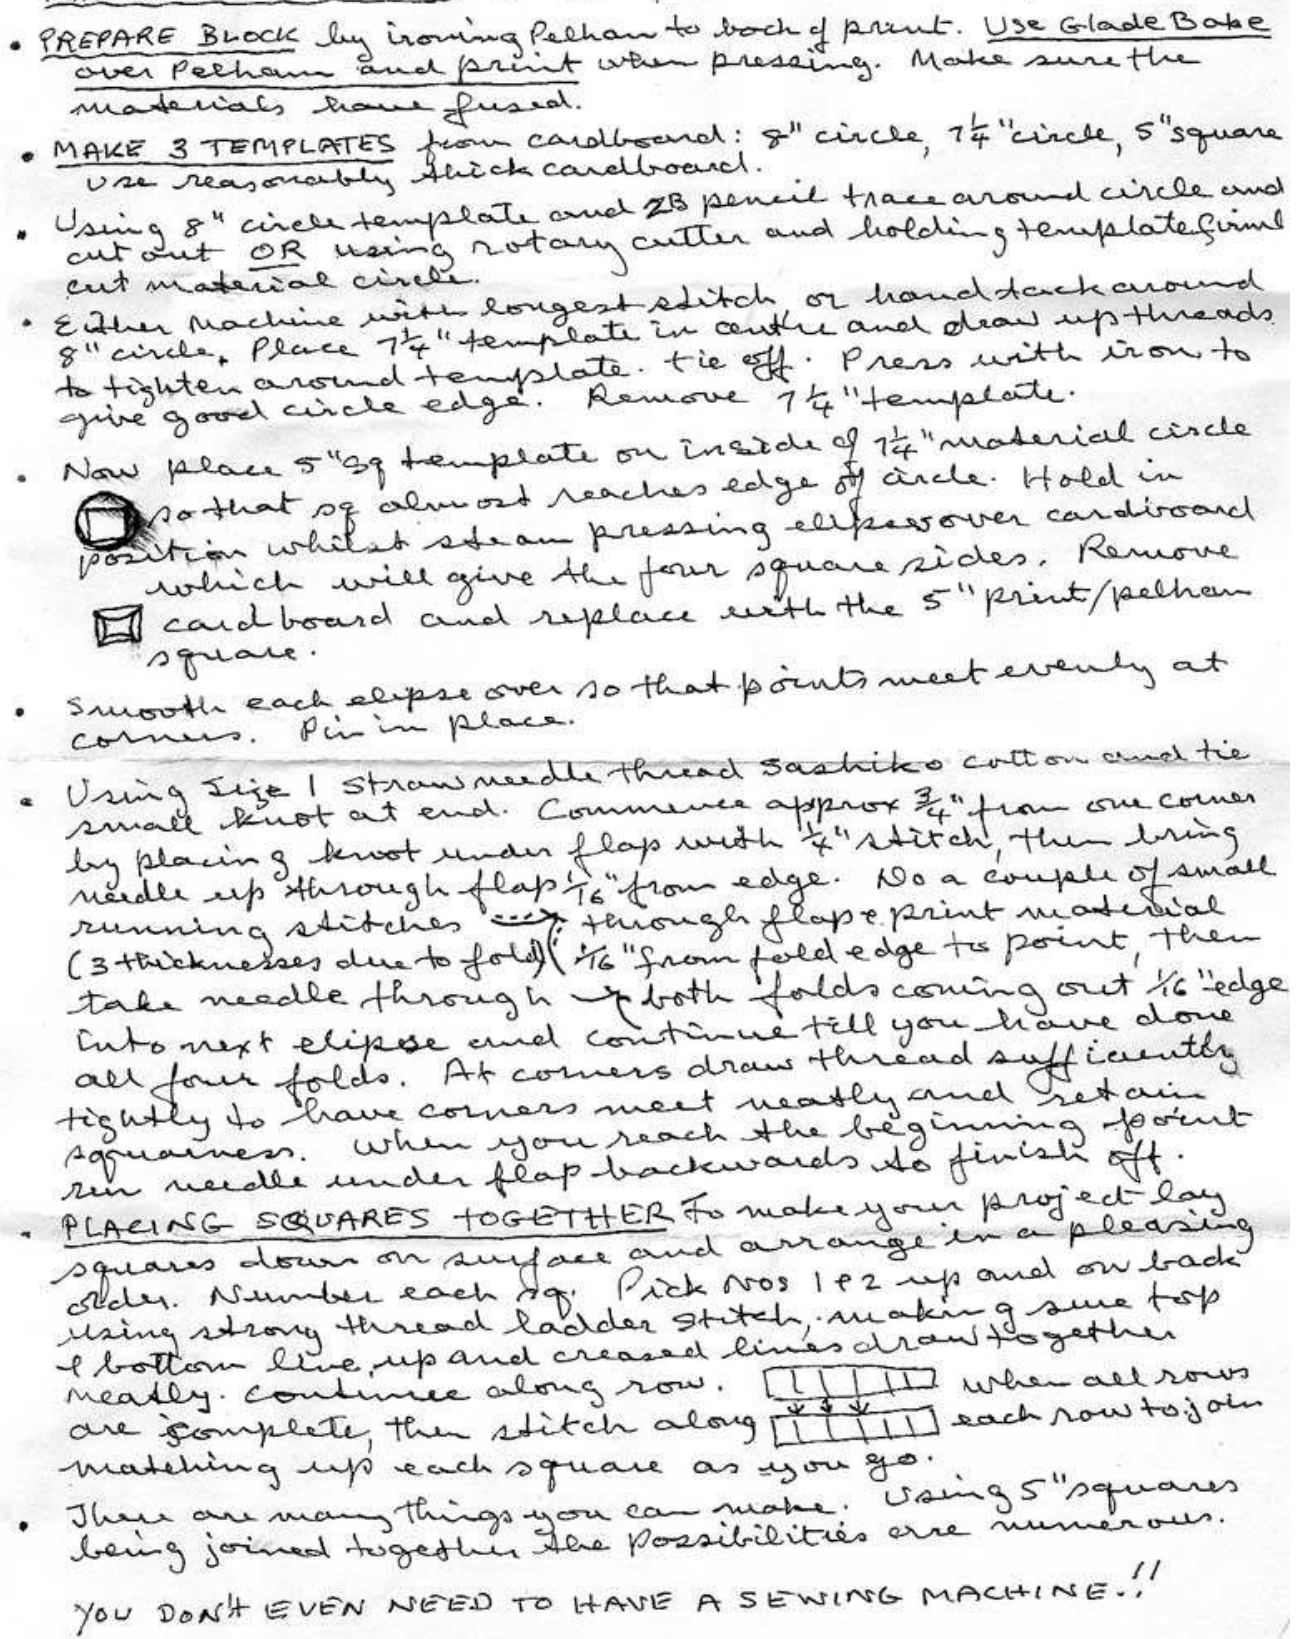 • PREPARE BLOCK by ironing Pelham to back of print. Use Glade Bake
over Pelham and print when pressing. Make sure the
materials have fused.
• MAKE 3 TEMPLATES from cardboard: 8" circle, 7¼" circle, 5" square
use reasonably thick cardboard.
• Using 8" circle template and 2B pencil trace around circle and
cut out OR using rotary cutter and holding template firml
cut material circle.
• Either machine with longest stitch, or hand tack around
8" circle. Place 7¼" template in centre and draw up threads
to tighten around template. tie off. Press with iron to
give good circle edge. Remove 7¼" template.
• Now place 5" sq template on inside of 7¼" material circle
so that sq almost reaches edge of circle. Hold in
position whilst steam pressing elipses over cardboard
which will give the four square sides. Remove
cardboard and replace with the 5" print/pelham
square.
• Smooth each elipse over so that points meet evenly at
corners. Pin in place.
• Using Size 1 Straw needle thread Sashiko cotton and tie
small knot at end. Commence approx ¾" from one corner
by placing knot under flap with ¼" stitch, then bring
needle up through flap 1/16" from edge. Do a couple of small
running stitches through flap & print material
(3 thicknesses due to fold) (1/16" from fold edge to point, then
take needle through both folds coming out 1/16" edge
into next elipse and continue till you have done
all four folds. At corners draw thread sufficiently
tightly to have corners meet neatly and retain
squareness. When you reach the beginning point
run needle under flap backwards to finish off.
• PLACING SQUARES TOGETHER To make your project lay
squares down on surface and arrange in a pleasing
order. Number each sq. Pick Nos 1 & 2 up and on back
using strong thread ladder stitch, making sure top
& bottom line up and creased lines draw together
neatly. Continue along row. when all rows
are complete, then stitch along each row to join
matching up each square as you go.
• There are many things you can make. Using 5" squares
being joined together the possibilities are numerous.
YOU DON'T EVEN NEED TO HAVE A SEWING MACHINE.!!